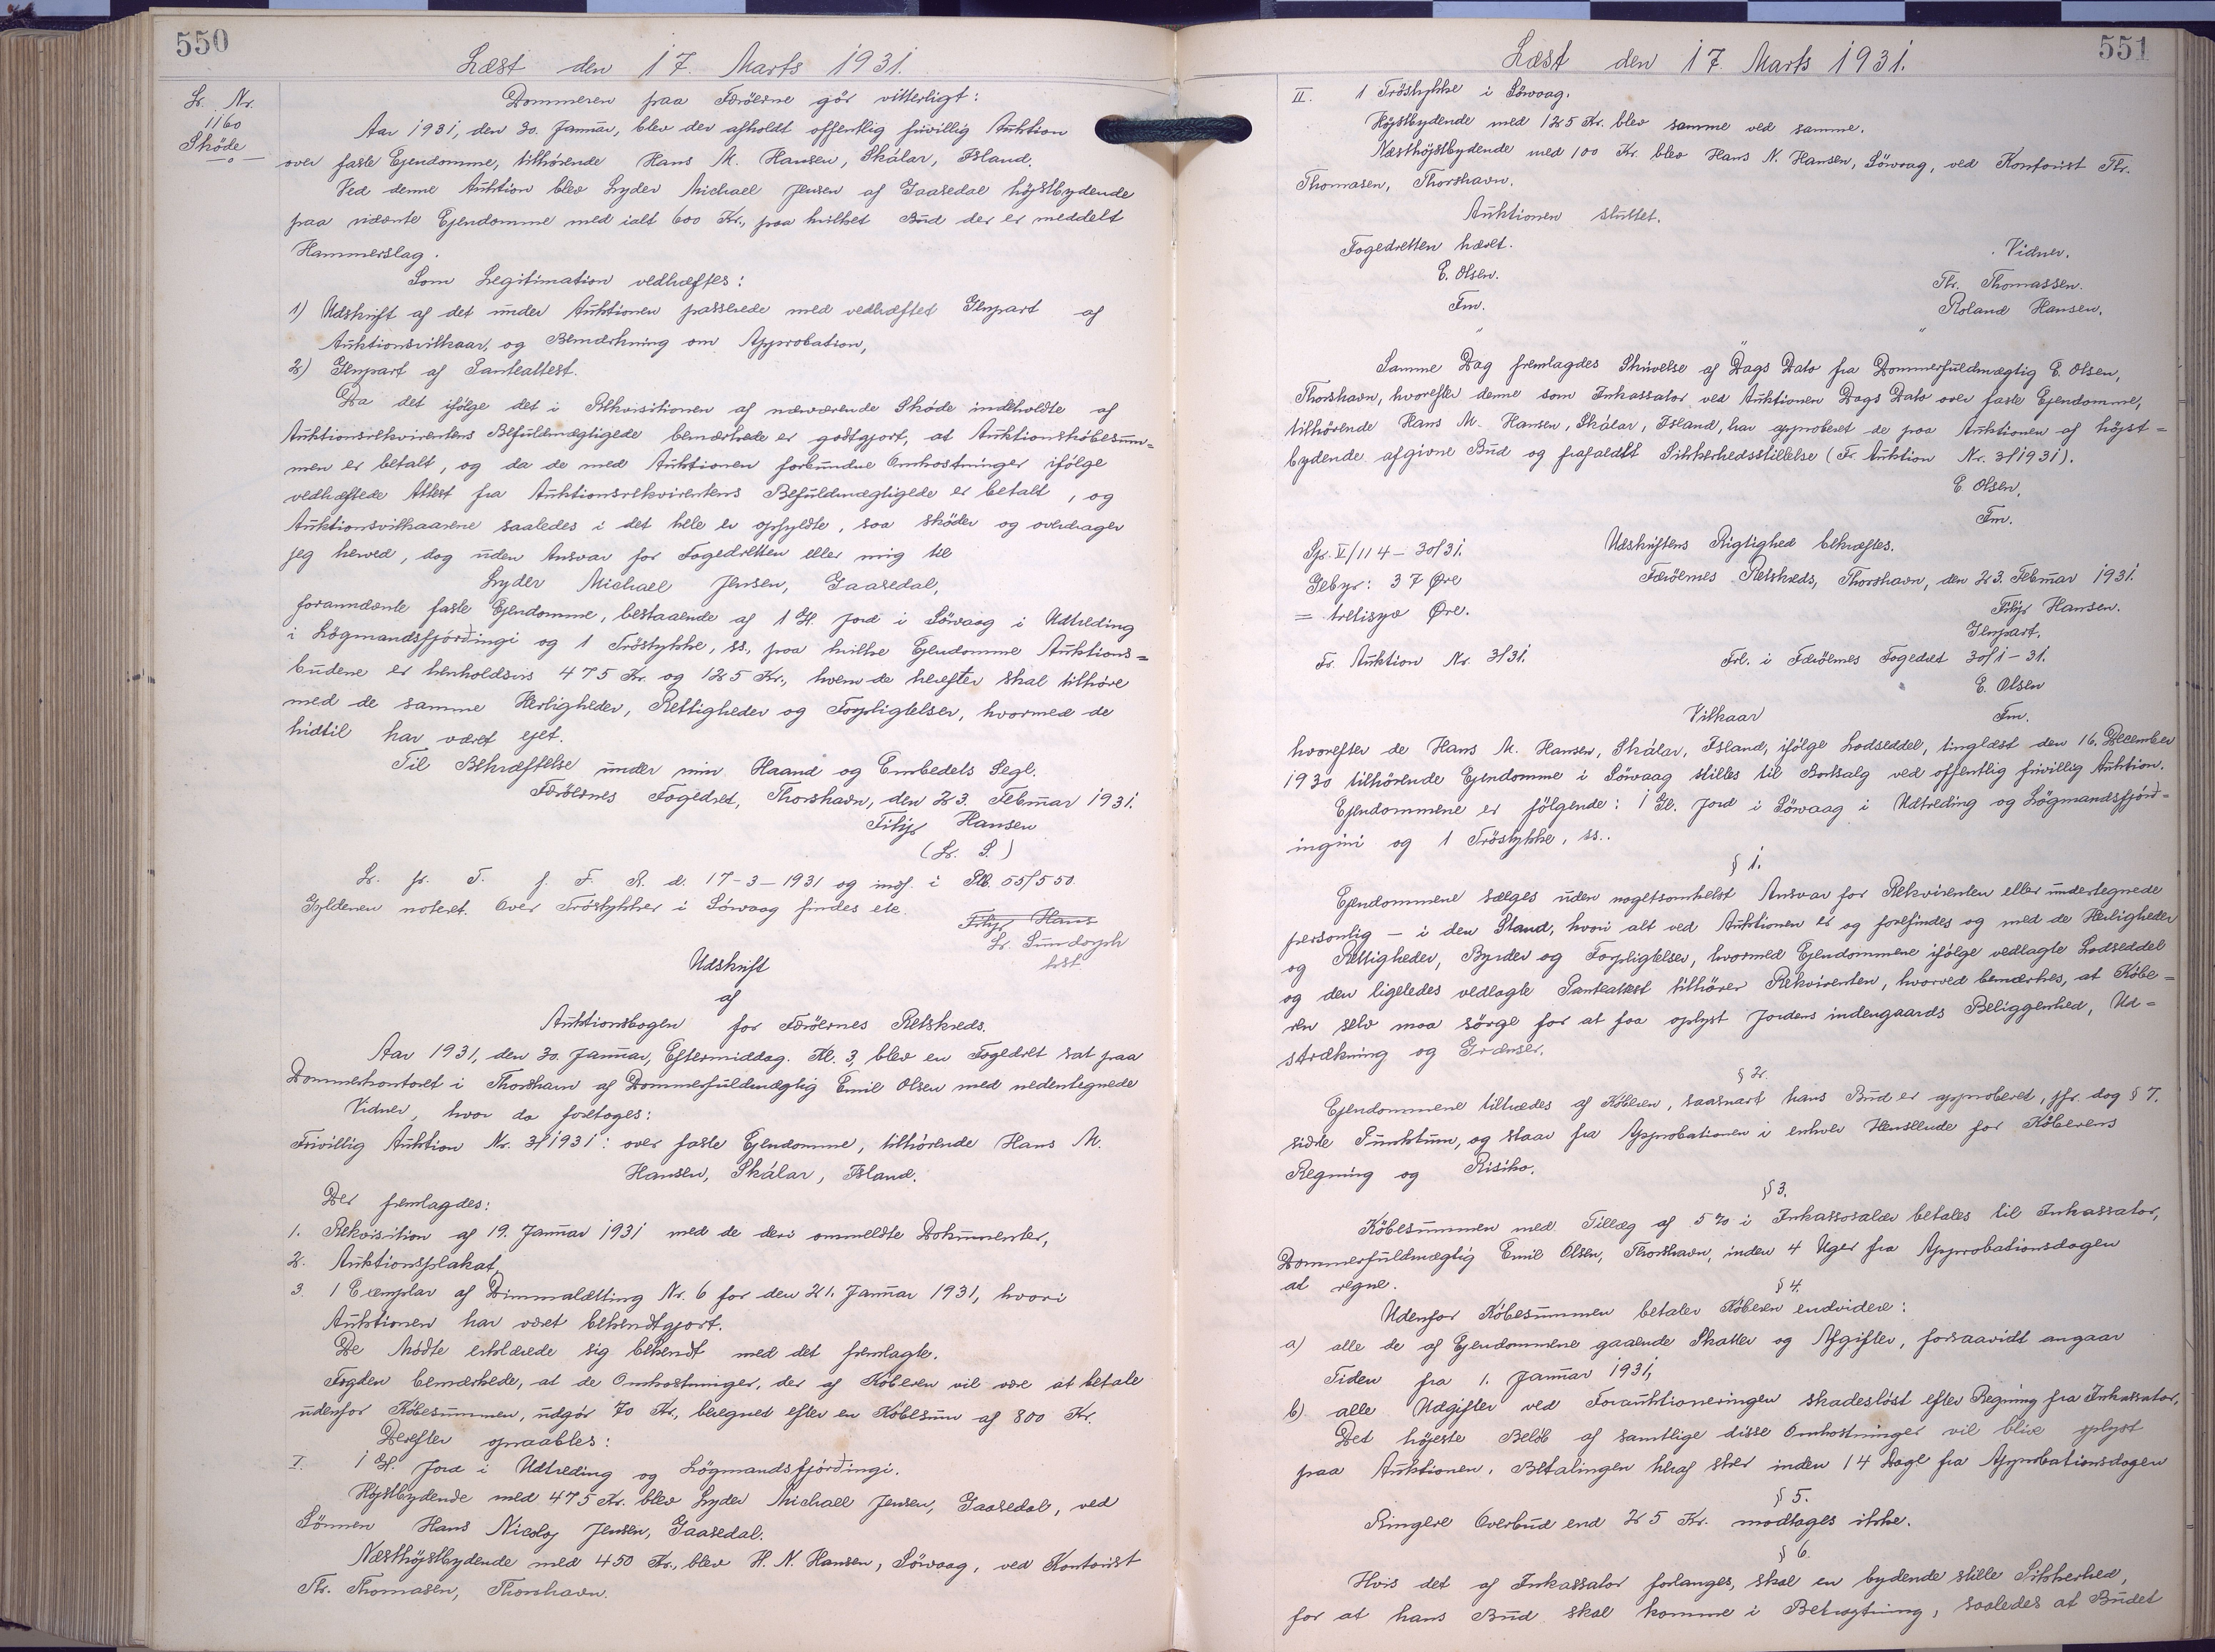 550
Læst den 17. Marts 1931.
L. Nr.
1160
Sköde
Dommeren paa Færöerne gör vitterligt:
Aar 1931, den 30. Januar, blev der afholdt offentlig frivillig Auktion
over faste Ejendomme, tilhörende Hans M. Hansen, Skálar, Island.
Ved denne Auktion blev Lyder Michael Jensen af Gaasedal höjstbydende
paa nævnte Ejendomme med ialt 600 Kr., paa hvilket Bud der er meddelt
Hammerslag.
Som Legitimation vedhæftes:
1) Udskrift af det under Auktionen passerede med vedhæftet Genpart af
Auktionsvilkaar, og Bemærkning om Approbation,
2) Genpart af Panteattest.
Da det ifölge det i Rekvisitionen af nærværende Sköde indeholdte af
Auktionsrekvirentens Befuldmægtigede bemærkede er godtgjort, at Auktionsköbesum=
men er betalt, og da de med Auktionen forbundne Omkostninger ifölge
vedhæftede Attest fra Auktionsrekvirentens Befuldmægtigede er betalt, og
Auktionsvilkaarene saaledes i det hele er opfyldte, saa sköder og overdrager
jeg herved, dog uden Ansvar for Fogedretten eller mig til
Lyder Michael Jensen, Gaasedal,
forannævnte faste Ejendomme, bestaaende af 1 Gl. Jord i Sörvaag i Udtreding
i Lögmandsfjórðingi og 1 Tröstykke, ss., paa hvilke Ejendomme Auktions=
budene er henholdsvis 475 Kr. og 125 Kr., hvem de herefter skal tilhöre
med de samme Herligheder, Rettigheder og Forpligtelser, hvormed de
hidtil har været ejet.
Til Bekræftelse under min Haand og Embedets Segl.
Færöernes Fogedret, Thorshavn, den 23. Februar 1931.
Filip Hansen
(L. S.)
L. p. T. f. F. R. d. 17-3-1931 og indf. i Pb. 55/550.
Gyldenen noteret. Over Tröstykker i Sörvaag findes ete.
Filip Hans
L. Sundorph
kst.
Udskrift
af
Auktionsbogen for Færöernes Retskreds.
Aar 1931, den 30. Januar, Eftermiddag. Kl. 3, blev en Fogedret sat paa
Dommerkontoret i Thorshavn af Dommerfuldmægtig Emil Olsen med nedentegnede
Vidner, hvor da foretoges:
Frivillig Auktion Nr. 3/1931: over faste Ejendomme, tilhörende Hans M.
Hansen, Skálar, Island.
Der fremlagdes:
1. Rekvisition af 19. Januar 1931 med de deri ommeldte Dokumenter,
2. Auktionsplakat,
3. 1 Exemplar af Dimmalætting Nr. 6 for den 21. Januar 1931, hvori
Auktionen har været bekendtgjort.
De Mödte erklærede sig bekendt med det fremlagte.
Fogden bemærkede, at de Omkostninger, der af Köberen vil være at betale
udenfor Köbesummen, udgör 70 Kr., beregned efter en Köbesum af 800 Kr.
Derefter opraabtes:
I. 1 Gl. Jord i Udtreding og Lögmandsfjórðingi.
Höjstbydende med 475 Kr. blev Lyder Michael Jensen, Gaasedal, ved
Sönnen Hans Nicolaj Jensen, Gaasedal.
Næsthöjstbydende med 450 Kr., blev H. N. Hansen, Sörvaag, ved Kontorist
Thr. Thomasen, Thorshavn.
551
Læst den 17. Marts 1931.
II. 1 Tröstykke i Sörvaag.
Höjstbydende med 125 Kr. blev samme ved samme.
Næsthöjstbydende med 100 Kr. blev Hans N. Hansen, Sörvaag, ved Kontorist Thr.
Thomasen, Thorshavn.
Auktionen sluttet.
Fogedretten hævet.
Vidner.
E. Olsen.
Thr. Thomassen.
Fm.
Roland Hansen.
Samme Dag fremlagdes Skrivelse af Dags Dato fra Dommerfuldmægtig E. Olsen,
Thorshavn, hvorefter denne som Inkassator ved Auktionen Dags Dato over faste Ejendomme,
tilhörende Hans M. Hansen, Skálar, Island, har approberet de paa Auktionen af höjst=
bydende afgivne Bud og frafaldt Sikkerhedsstillelse (Fr. Auktion Nr. 3/1931).
E. Olsen,
Fm.
Gr. V/114-30/31.
Udskriftens Rigtighed bekræftes.
Gebyr: 37 Øre
Færöernes Retskreds, Thorshavn, den 23. Februar 1931.
= tretisyv Øre.
Filip Hansen.
Genpart.
Fr. Auktion Nr. 3/31.
Frl. i Færöernes Fogedret 30/1-31.
E. Olsen
Vilkaar
Fm.
hvorefter de Hans M. Hansen, Skálar, Island, ifölge Lodseddel, tinglæst den 16. December
1930 tilhörende Ejendomme i Sörvaag stilles til Bortsalg ved offentlig frivillig Auktion.
Ejendommene er fölgende: 1 Gl. Jord i Sörvaag i Udtreding og Lögmandsfjórð=
inginí og 1 Tröstykke, ss..
§ 1.
Ejendommene sælges uden nogetsomhelst Ansvar for Rekvirenten eller undertegnede
personlig - i den Stand, hvori alt ved Auktionen er og forefindes og med de Herligheder
og Rettigheder, Byrder og Forpligtelser, hvormed Ejendommene ifölge vedlagte Lodseddel
og den ligeledes vedlagte Panteattest tilhörer Rekvirenten, hvorved bemærkes, at Köbe=
ren selv maa sörge for at faa oplyst Jordens indengaards Beliggenhed, Ud=
strækning og Grænser.
§ 2.
Ejendommene tiltrædes af Köberen, saasnart hans Bud er approberet, jfr. dog § 7.
sidste Punktum, og staar fra Approbationen i enhver Henseende for Köberens
Regning og Risiko.
§ 3.
Köbesummen med Tillæg af 5% i Inkassosalær betales til Inkassator,
Dommerfuldmægtig Emil Olsen, Thorshavn, inden 4 Uger fra Approbationsdagen
at regne.
§ 4.
Udenfor Köbesummen betaler Köberen endvidere:
a) alle de af Ejendommene gaaende Skatter og Afgifter, forsaavidt angaar
Tiden fra 1. Januar 1931,
b) alle Udgifter ved Forauktioneringen skadeslöst efter Regning fra Inkassator,
Det höjeste Belöb af samtlige disse Omkostninger vil blive oplyst
paa Auktionen. Betalingen heraf sker inden 14 Dage fra Approbationsdagen
§ 5.
Ringere Overbud end 25 Kr. modtages ikke.
§ 6.
Hvis det af Inkassator forlanges, skal en bydende stille Sikkerhed,
for at hans Bud skal komme i Betragtning, saaledes at Budet